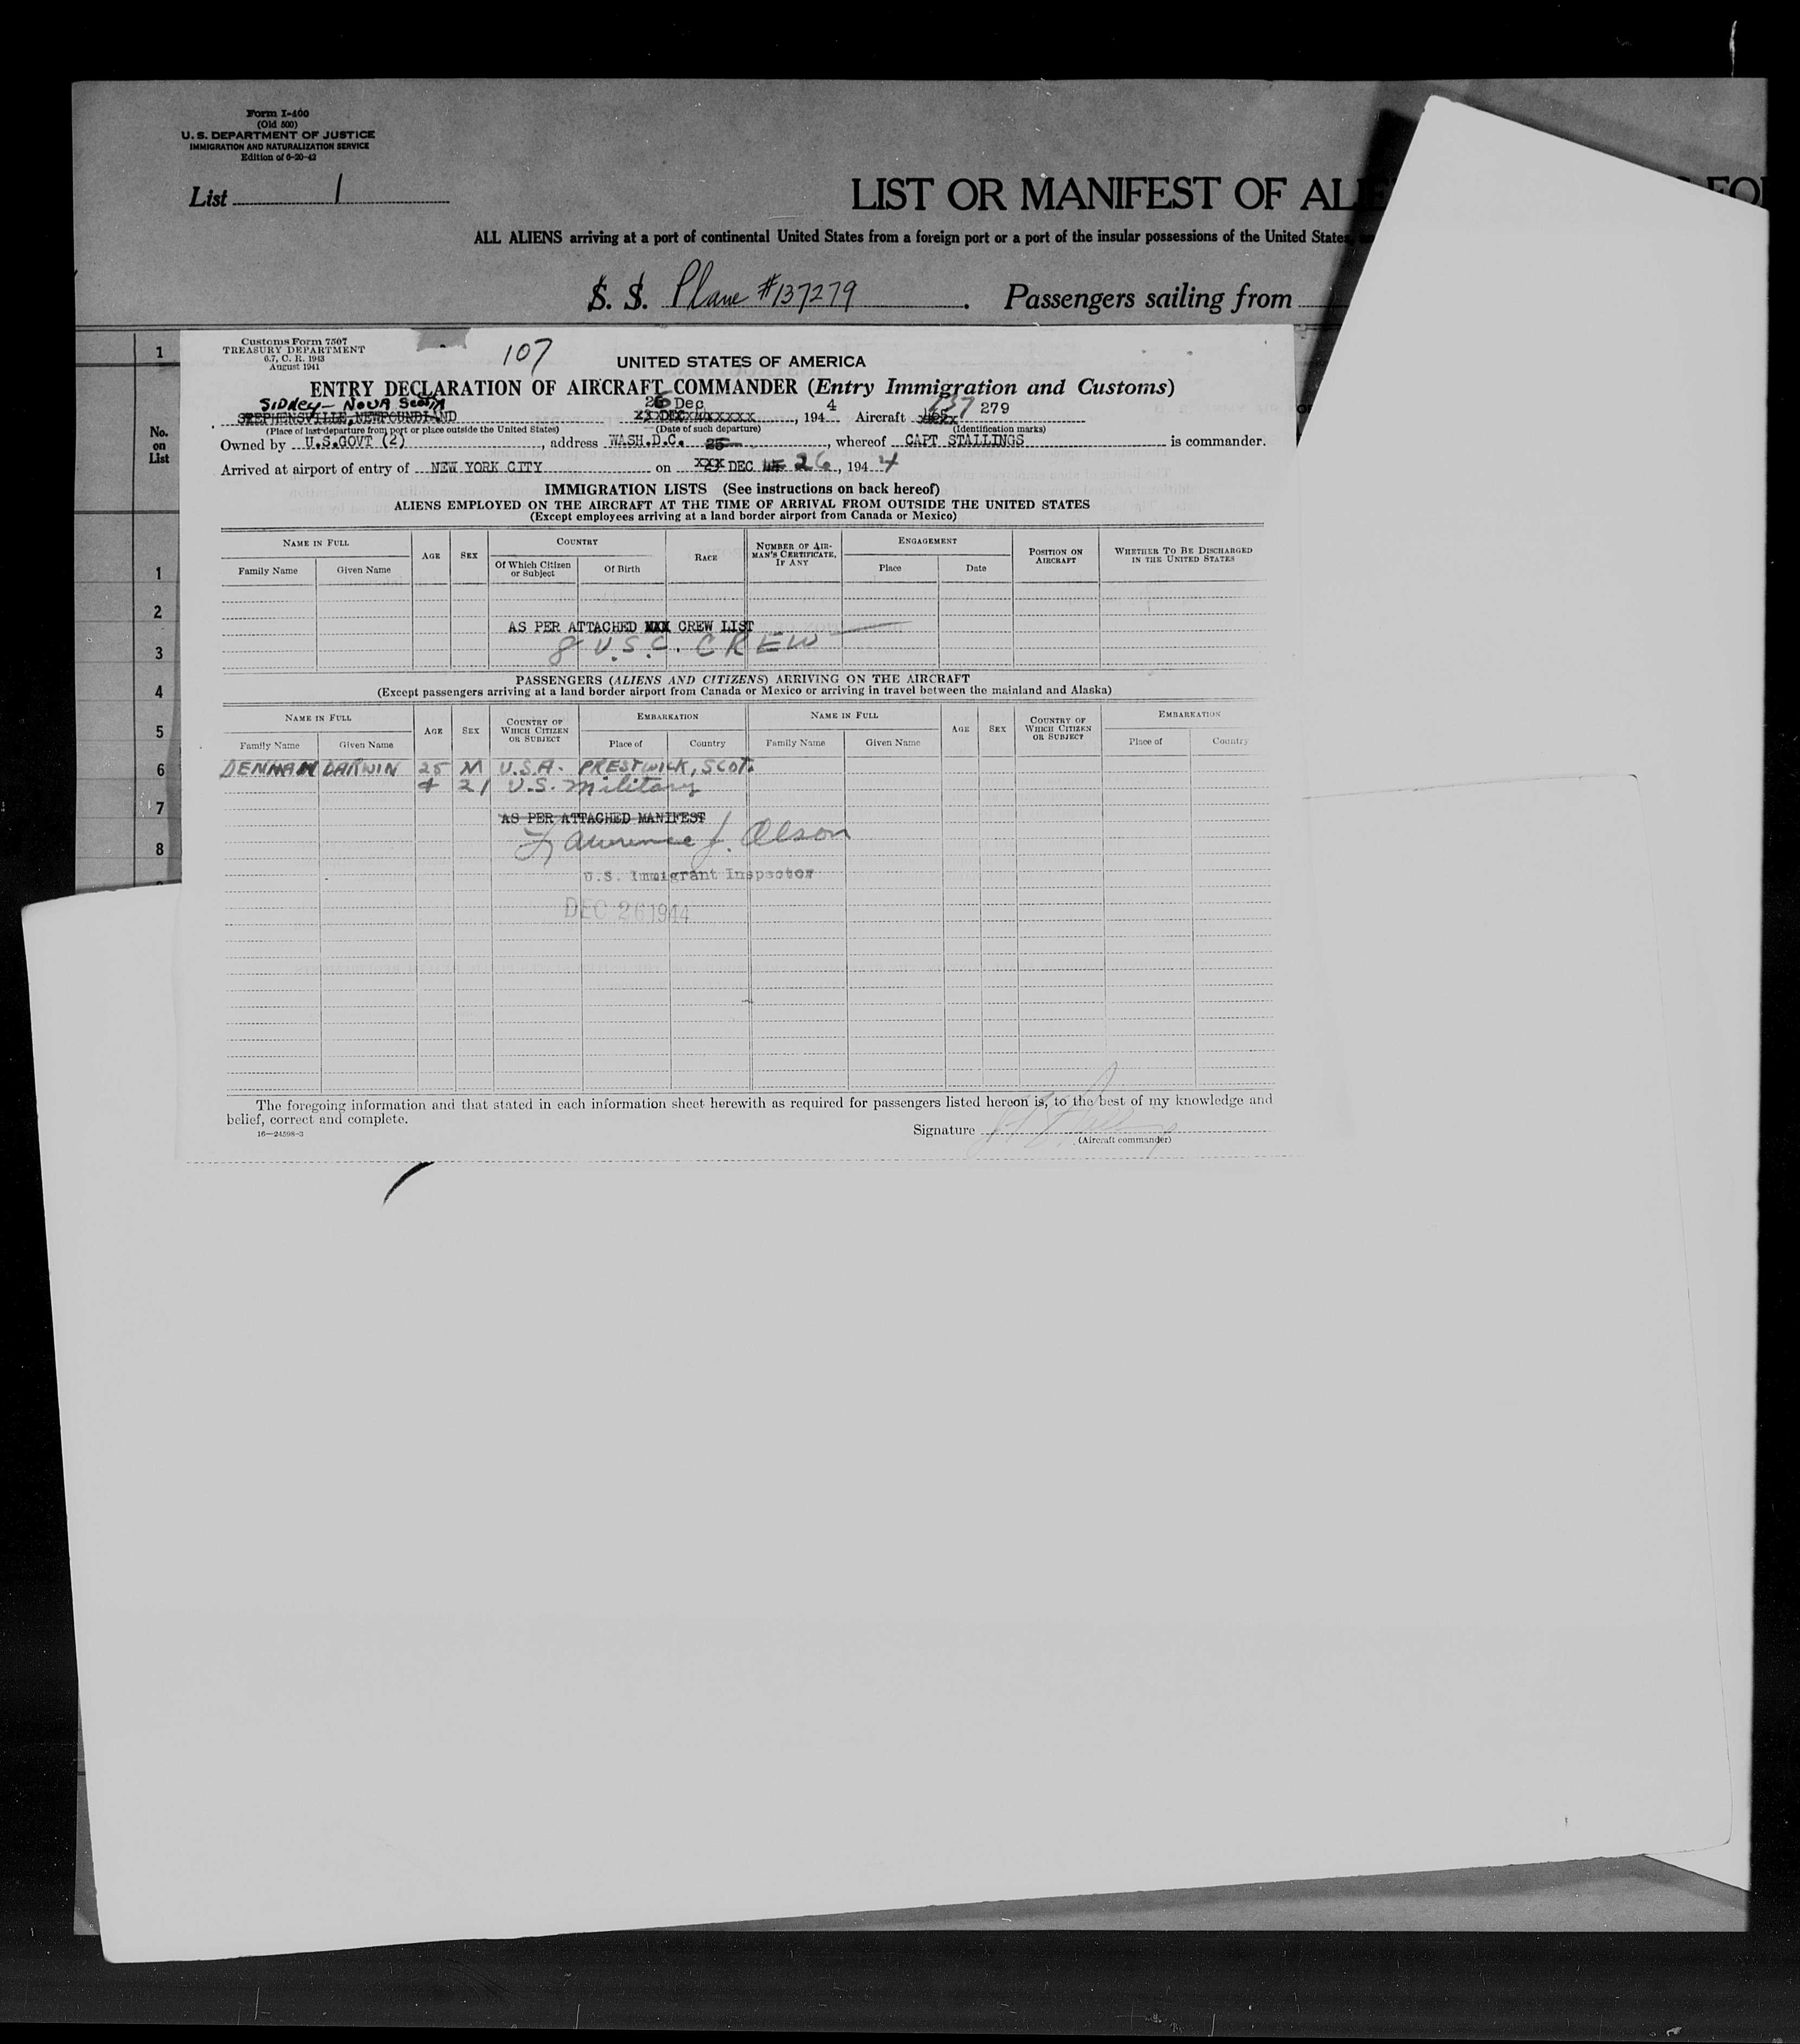 Form I-400
(Old 500)
U. S. DEPARTMENT OF JUSTICE
IMMIGRATION AND NATURALIZATION SERVICE
Edition of 6-20-42
List 1
LIST OR MANIFEST OF ALIE
FO
ALL ALIENS arriving at a port of continental United States from a foreign port or a port of the insular possessions of the United States,
S. S. Plane #137279. Passengers sailing from
No.
on
List
1
1
2
3
4
5
6
7
8
Customs Form 7507
TREASURY DEPARTMENT
6.7, C. R. 1943
August 1941
107
UNITED STATES OF AMERICA
ENTRY DECLARATION OF AIRCRAFT COMMANDER (Entry Immigration and Customs)
SIDNEY - NOVA SCOTIA
STEPHENSVILLE, NEWFOUNDLAND 26 Dec, 1944 Aircraft 137 279
(Place of last departure from port or place outside the United States) (Date of such departure) (Identification marks)
Owned by U.S.GOVT (2), address WASH.D.C. 25, whereof CAPT STALLINGS is commander.
Arrived at airport of entry of NEW YORK CITY on XXX DEC 26, 1944
IMMIGRATION LISTS (See instructions on back hereof)
ALIENS EMPLOYED ON THE AIRCRAFT AT THE TIME OF ARRIVAL FROM OUTSIDE THE UNITED STATES
(Except employees arriving at a land border airport from Canada or Mexico)
NAME IN FULL AGE SEX COUNTRY RACE NUMBER OF AIRMAN'S CERTIFICATE, IF ANY ENGAGEMENT POSITION ON AIRCRAFT WHETHER TO BE DISCHARGED IN THE UNITED STATES
Family Name Given Name Of Which Citizen or Subject Of Birth Place Date
AS PER ATTACHED XXX CREW LIST
8 U.S.C. CREW
PASSENGERS (ALIENS AND CITIZENS) ARRIVING ON THE AIRCRAFT
(Except passengers arriving at a land border airport from Canada or Mexico or arriving in travel between the mainland and Alaska)
NAME IN FULL AGE SEX COUNTRY OF WHICH CITIZEN OR SUBJECT EMBARKATION NAME IN FULL AGE SEX COUNTRY OF WHICH CITIZEN OR SUBJECT EMBARKATION
Family Name Given Name Place of Country Family Name Given Name Place of Country
DENMAN DARWIN 25 M U.S.A. PRESTWICK, SCOT.
+ 21 U.S. Military
AS PER ATTACHED MANIFEST
Lawrence J. Olson
U.S. Immigrant Inspector
DEC 26 1944
The foregoing information and that stated in each information sheet herewith as required for passengers listed hereon is, to the best of my knowledge and
belief, correct and complete.
16—24598-3
Signature
(Aircraft commander)